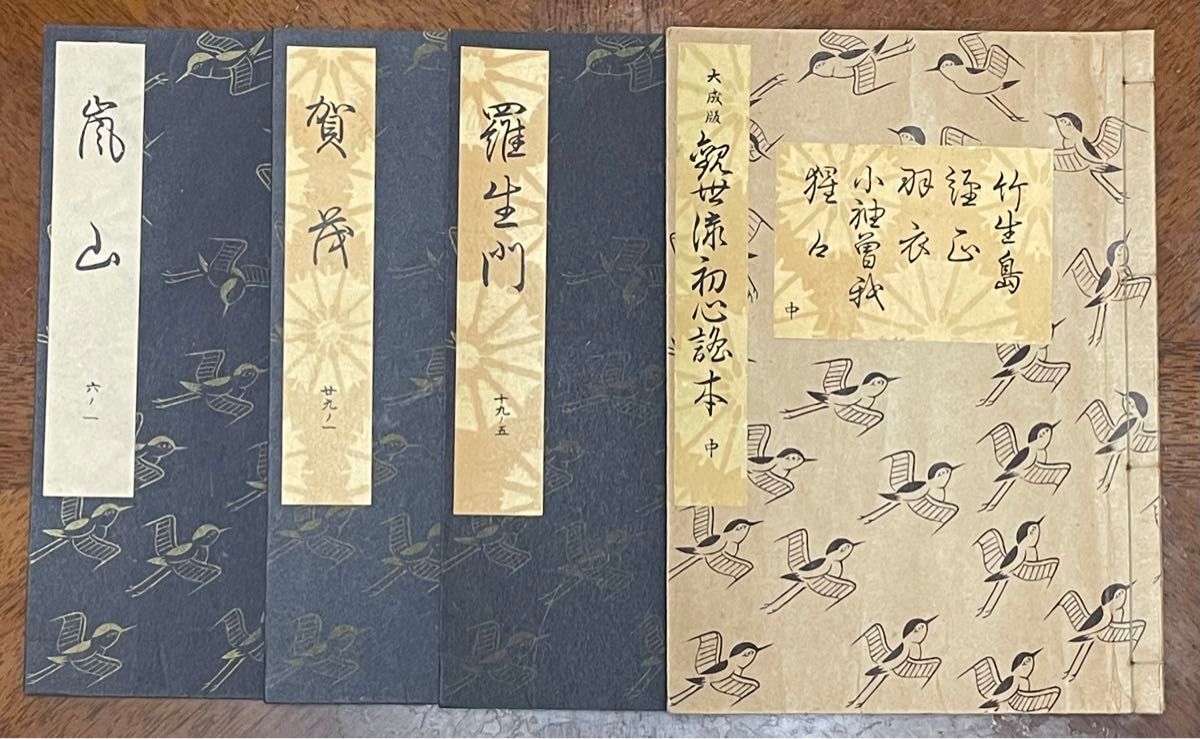 嵐山
六ノ一
賀茂
廿九ノ一
羅生門
十九ノ五
大成版
觀世流初心謠本
中
竹生島
經正
羽衣
小袖曽我
猩々
中